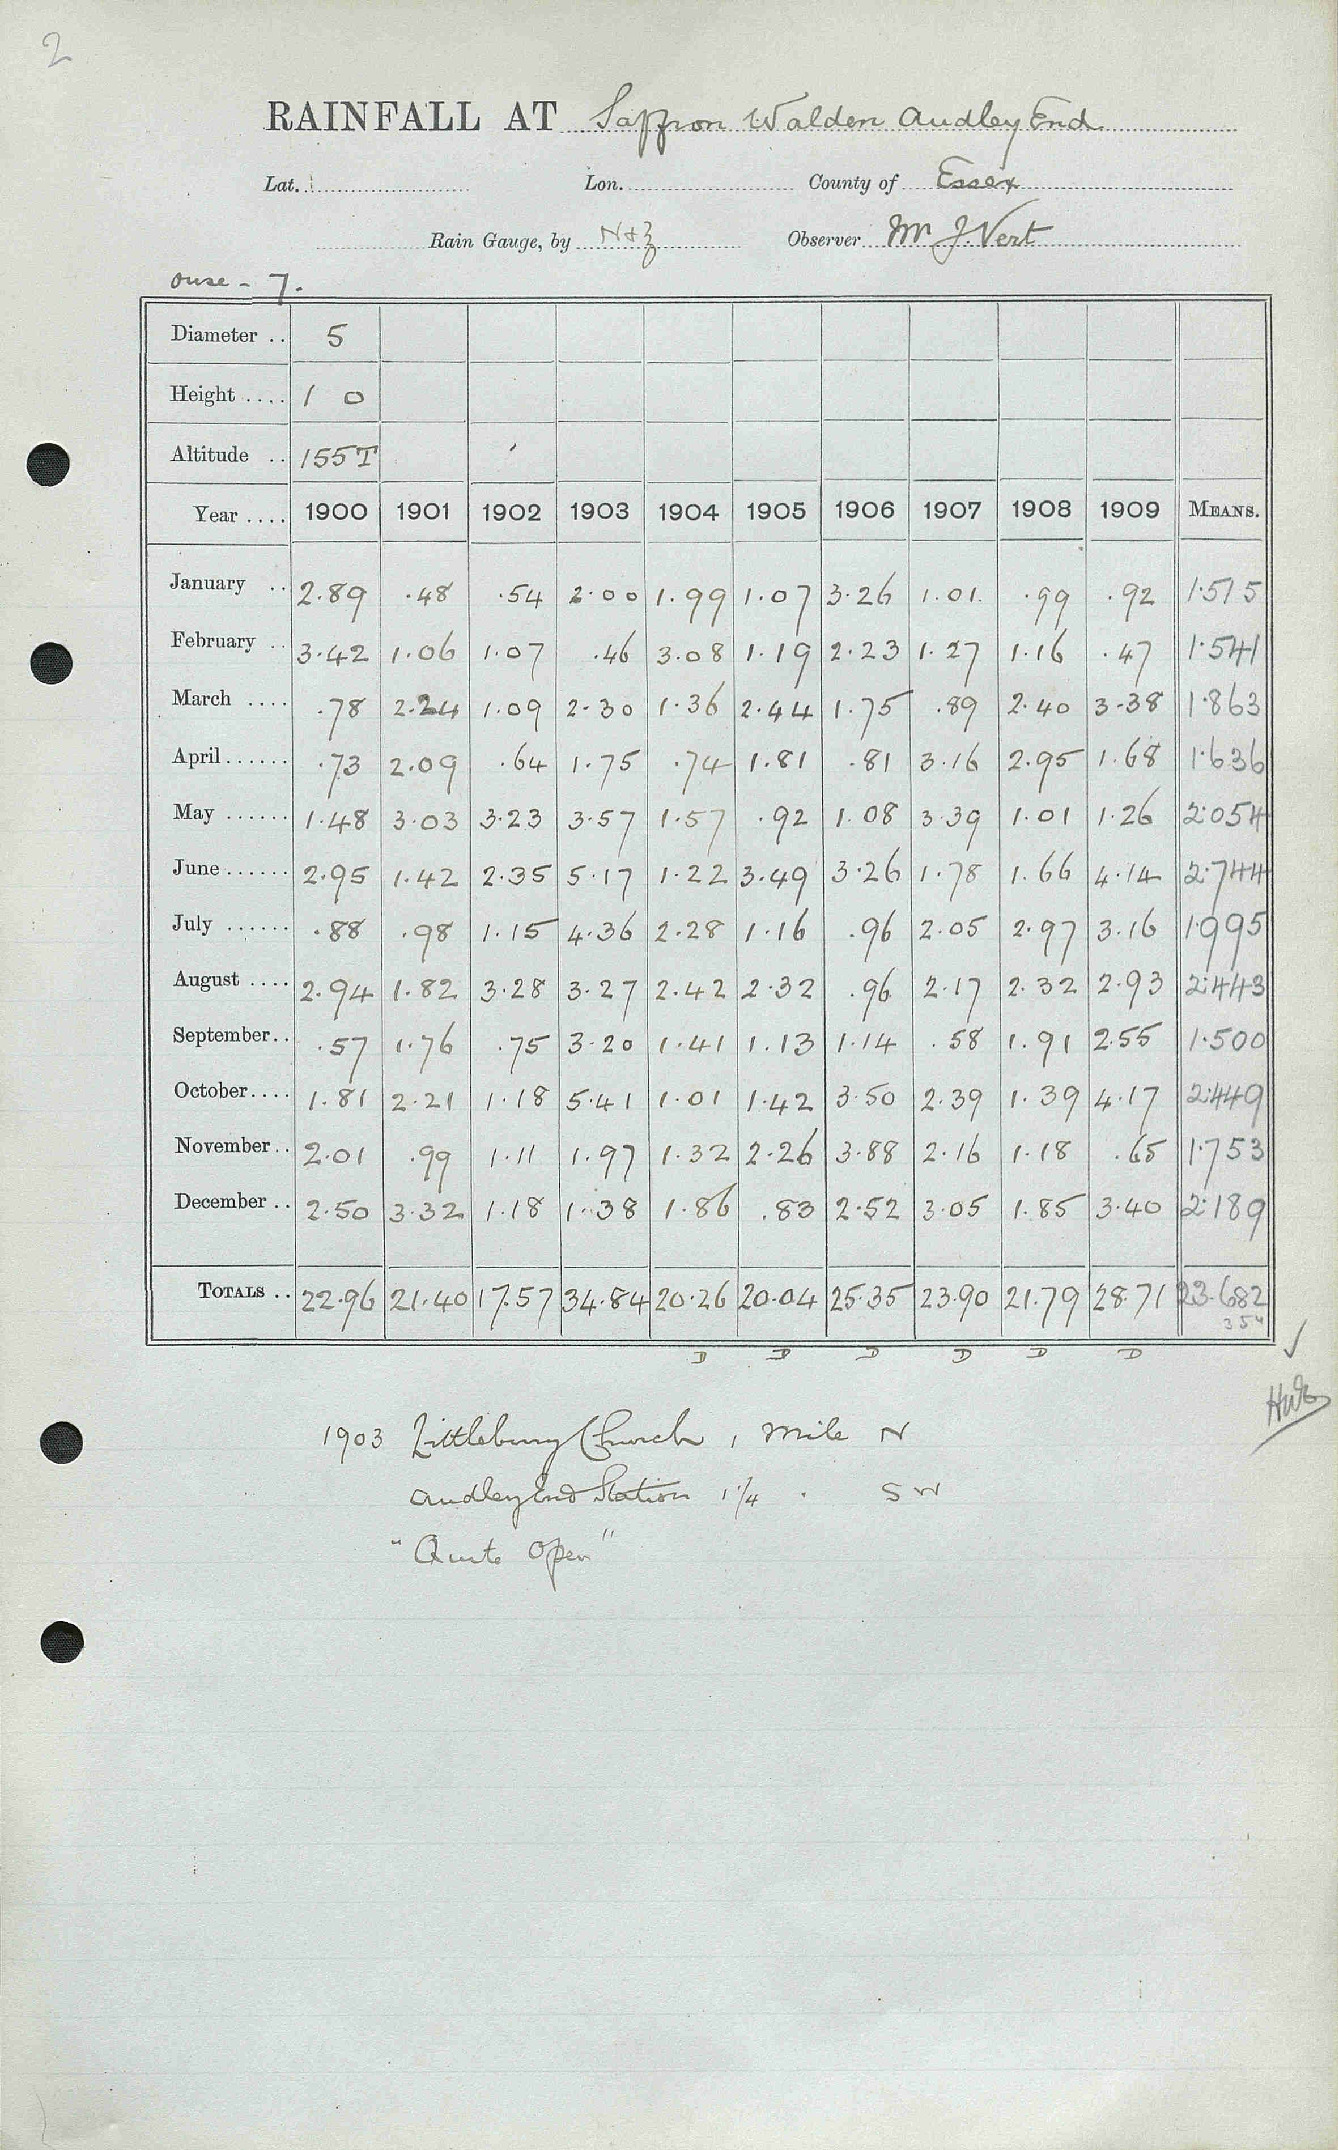 2
RAINFALL AT Saffron Walden Audley End
Lat. Lon. County of Essex
Rain Gauge, by N+Z Observer Mr J. Vert
Ouse - 7.
Diameter .. 5
Height .... 1 0
Altitude .. 155T
Year .... 1900 1901 1902 1903 1904 1905 1906 1907 1908 1909 MEANS.
January .. 2.89 .48 .54 2.00 1.99 1.07 3.26 1.01 .99 .92 1.515
February .. 3.42 1.06 1.07 .46 3.08 1.19 2.23 1.27 1.16 .47 1.541
March .... .78 2.24 1.09 2.30 1.36 2.44 1.75 .89 2.40 3.38 1.863
April...... .73 2.09 .64 1.75 .74 1.81 .81 3.16 2.95 1.68 1.636
May ...... 1.48 3.03 3.23 3.57 1.57 .92 1.08 3.39 1.01 1.26 2.054
June...... 2.95 1.42 2.35 5.17 1.22 3.49 3.26 1.78 1.66 4.14 2.744
July ...... .88 .98 1.15 4.36 2.28 1.16 .96 2.05 2.97 3.16 1.995
August .... 2.94 1.82 3.28 3.27 2.42 2.32 .96 2.17 2.32 2.93 2.443
September.. .57 1.76 .75 3.20 1.41 1.13 1.14 .58 1.91 2.55 1.500
October.... 1.81 2.21 1.18 5.41 1.01 1.42 3.50 2.39 1.39 4.17 2.449
November.. 2.01 .99 1.11 1.97 1.32 2.26 3.88 2.16 1.18 .65 1.753
December .. 2.50 3.32 1.18 1.38 1.86 .83 2.52 3.05 1.85 3.40 2.189
TOTALS .. 22.96 21.40 17.57 34.84 20.26 20.04 25.35 23.90 21.79 28.71 23.682
354
D D D D D D
1903 Littlebury Church 1 mile N
Audley End Station 1 1/4 . SW
"Quite Open"